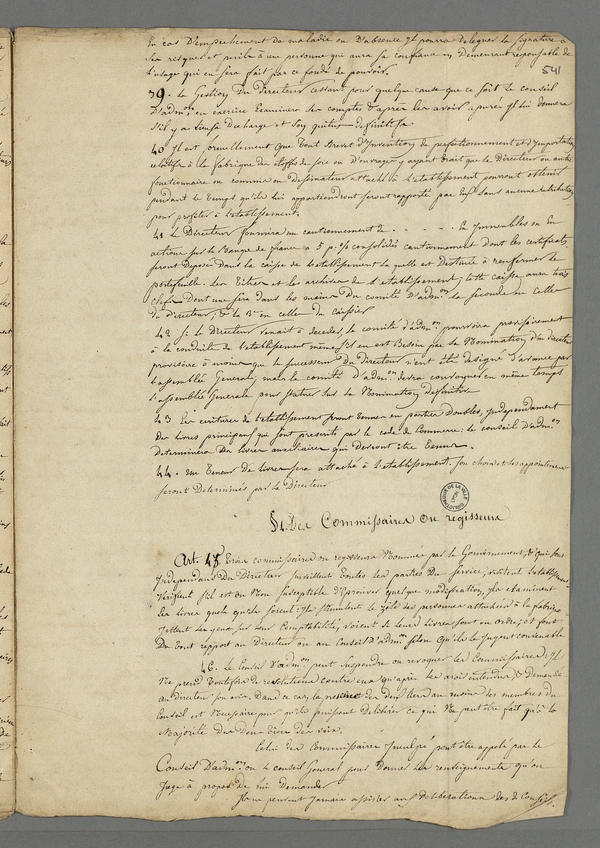 En cas d'empechement de maladie ou d'absence il pourra deleguer la signature a
ses risques et perils à une personne qui aura sa confiance en demeurant responsable de
l'usage qui en sera fait par ce fondé de pouvoirs.
541
39. La Gestion du Directeur cessant pour quelque cause que ce soit le conseil
D'adm.on en exercice Examinera ses comptes et après les avoir apurés il lui donnera
s'il y a lieu sa decharge et son quitus definitifs
40 Il est formellement que tout Brevet d'Invention de perfectionnement et d'Importation
relatifs à la fabrique des étoffes de soie ou d'ouvrages y ayant trait que le Directeur ou autre
fonctionnaire ou commis ou dessinateur attaché à l'etablissement pourront obtenir
pendant le temps qu'ils lui appartiendront seront rapportés par Eux sans aucune retribution
pour profiter à l'etablissement.
41 Le Directeur fournira un cautionnement de - - - - - En Immeubles ou En
actions sur la Banque de france a 5 p. % consolidés dont les certificats
seront deposés dans la caisse de l'etablissement la quelle est destinée à renfermer le
portefeuille. Les titres et les archives de l'etablissement, cette caisse aura trois
clefs dont une sera dans les mains du comité d'adm.on la seconde en celles
du directeur, & la 3e en celles du caissier
42 Si le Directeur venait à deceder, le comité d'adm.on pourvoira provisoirement
à la conduite de l'etablissement même s'il en est Besoin par la Nomination d'un directeur
provisoire à moins que le successeur du Directeur n'eut été designé d'avance par
l'assemblée Generale, mais le comité d'adm.on devra convoquer en même temps
l'assemblée Generale pour statuer sur la Nomination definitive
43 Les ecritures de l'etablissement seront tenues en parties doubles, Independament
des livres principaux qui sont prescrits par le code de Commerce. le conseil D'adm.on
determinera les livres auxiliaires qui devront être tenus.
44. un teneur de livres sera attaché à l'etablissement. son choix et ses appointemens
seront determinés par le Directeur
BIBLIOTHEQUE DE LA VILLE LYON
§4. Des Commissaires ou regisseurs
Art. 45 Trois commissaires ou regisseurs Nommés par le Gouvernement, & qui sont
Independans du Directeur surveillent toutes les parties du service, visitent l'etablissement
Verifient s'il est ou Non susceptible d'eprouver quelque modification, ils examinent
les livres quels qu'ils soient; ils stimulent le zèle des personnes attachées à la fabrique
jettent les yeux sur leur comptabilité, voient si leurs livres sont en ordre, et font
du tout rapport au Directeur ou au Conseil D'adm.on selon qu'ils le jugent convenable
46. Le Conseil D'adm.on peut suspendre ou revoquer les Commissaires; il
Ne prend toutefois de resolutions contre eux qu'après les avoir entendus, & demandé
au directeur son avis. Dans ce cas, la presence des deux tiers au moins des membres du
Conseil est Necessaire pour qu'ils puissent Deliberer ce qui Ne peut être fait qu'à la
Majorité des deux tiers des voix.
Celui des Commissaires Inculpé peut être appelé par le
Conseil D'adm.on ou le conseil General pour donner les renseignements qu'on
Juge à propos de lui demander
Ils ne peuvent jamais assister aux deliberations des 2 Conseils